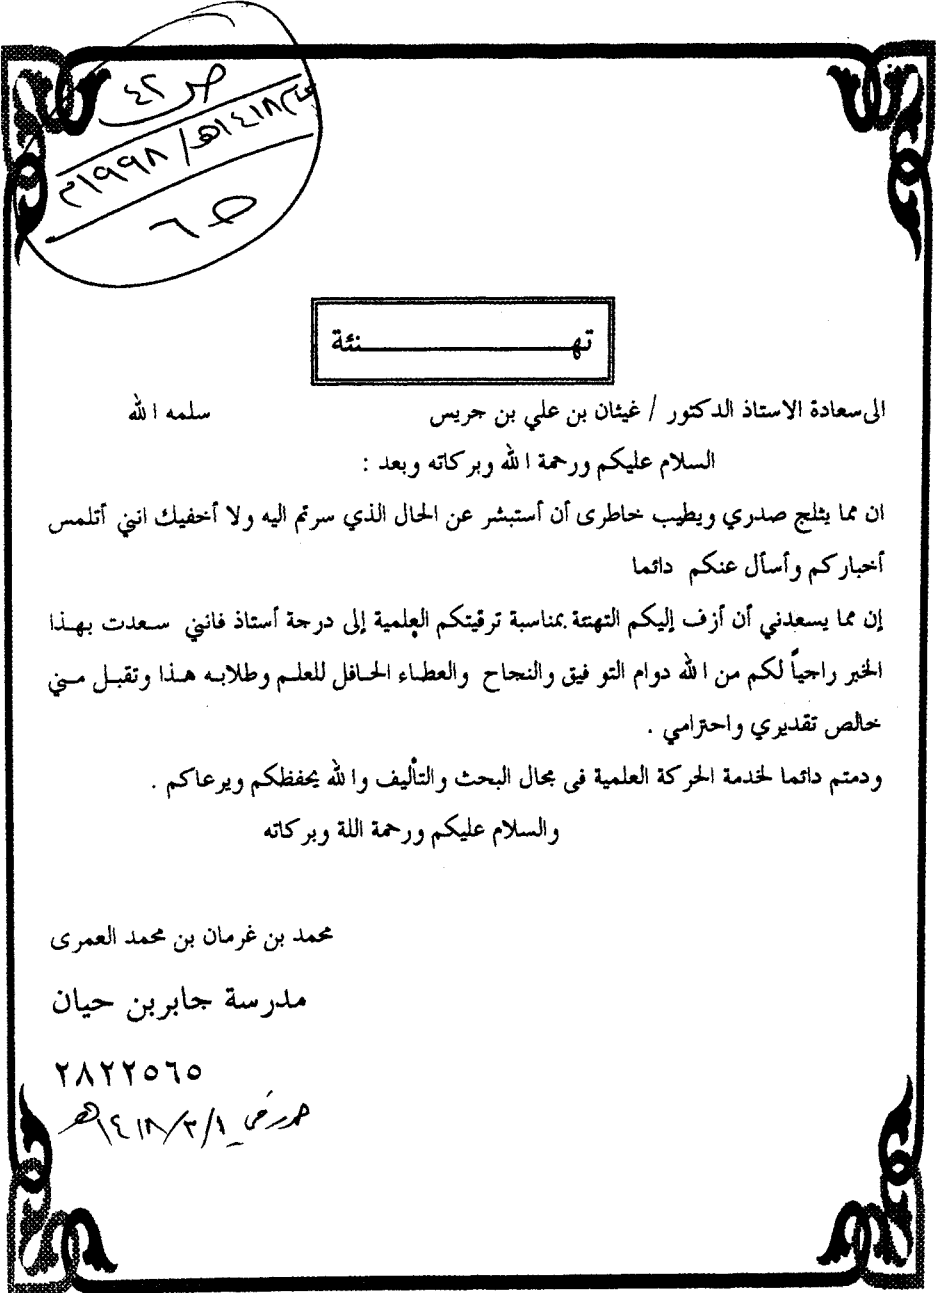 ص ٤٢
عام ١٤١٨هـ / ١٩٩٨م
ح ٦
تهـــــــــــنئة
الى سعادة الاستاذ الدكتور / غيثان بن علي بن جريس سلمه الله
السلام عليكم ورحمة الله وبركاته وبعد :
ان مما يثلج صدري ويطيب خاطرى أن أستبشر عن الحال الذي سرتم اليه ولا أخفيك انني أتلمس
أخباركم وأسأل عنكم دائما
إن مما يسعدني أن أزف إليكم التهنئة بمناسبة ترقيتكم العلمية إلى درجة أستاذ فانني سعدت بهذا
الخبر راجياً لكم من الله دوام التوفيق والنجاح والعطاء الحافل للعلم وطلابه هذا وتقبل مني
خالص تقديري واحترامي .
ودمتم دائما لخدمة الحركة العلمية فى مجال البحث والتأليف والله يحفظكم ويرعاكم .
والسلام عليكم ورحمة اللة وبركاته
محمد بن غرمان بن محمد العمرى
مدرسة جابربن حيان
٢٨٢٢٥٦٥
١/٣/١٤١٨هـ